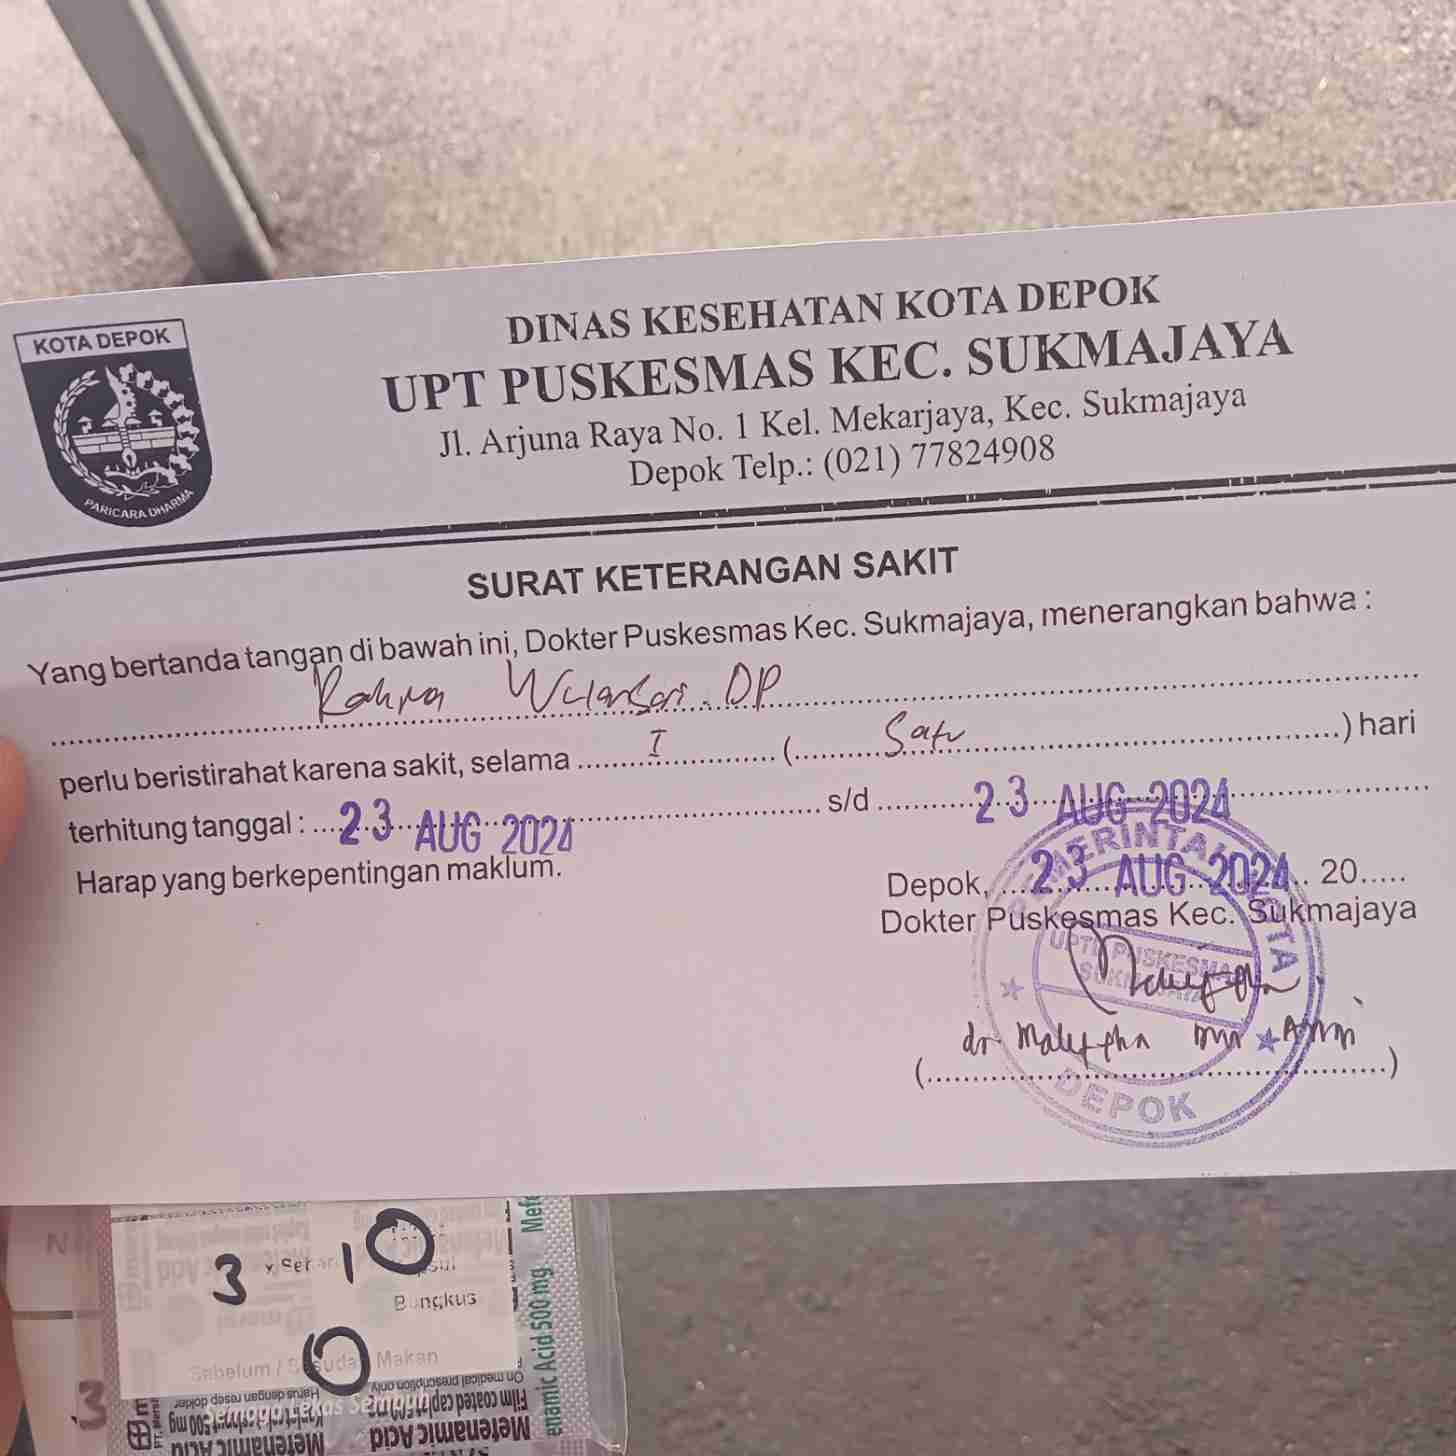 KOTA DEPOK
PARICARA DHARMA
DINAS KESEHATAN KOTA DEPOK
UPT PUSKESMAS KEC. SUKMAJAYA
Jl. Arjuna Raya No. 1 Kel. Mekarjaya, Kec. Sukmajaya
Depok Telp.: (021) 77824908
SURAT KETERANGAN SAKIT
Yang bertanda tangan di bawah ini, Dokter Puskesmas Kec. Sukmajaya, menerangkan bahwa :
Rahma Wulansari. DP
perlu beristirahat karena sakit, selama I ( Satu ) hari
terhitung tanggal : 23 AUG 2024 s/d 23 AUG 2024
Harap yang berkepentingan maklum.
Depok, 23 AUG 2024 20.....
Dokter Puskesmas Kec. Sukmajaya
PEMERINTAH KOTA
UPTD PUSKESMAS
SUKMAJAYA
dr
DEPOK
3 x Sehari 10
Bungkus
Sebelum / Sesudah Makan
Semoga Lekas Sembuh
On medical prescription only
Harus dengan resep dokter
Film coated caplet 500 mg
Mefenamic Acid
Mefenamic Acid
enamic Acid 500 mg
3